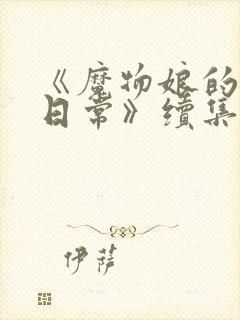 《魔物娘的
日常》續集
伊薩